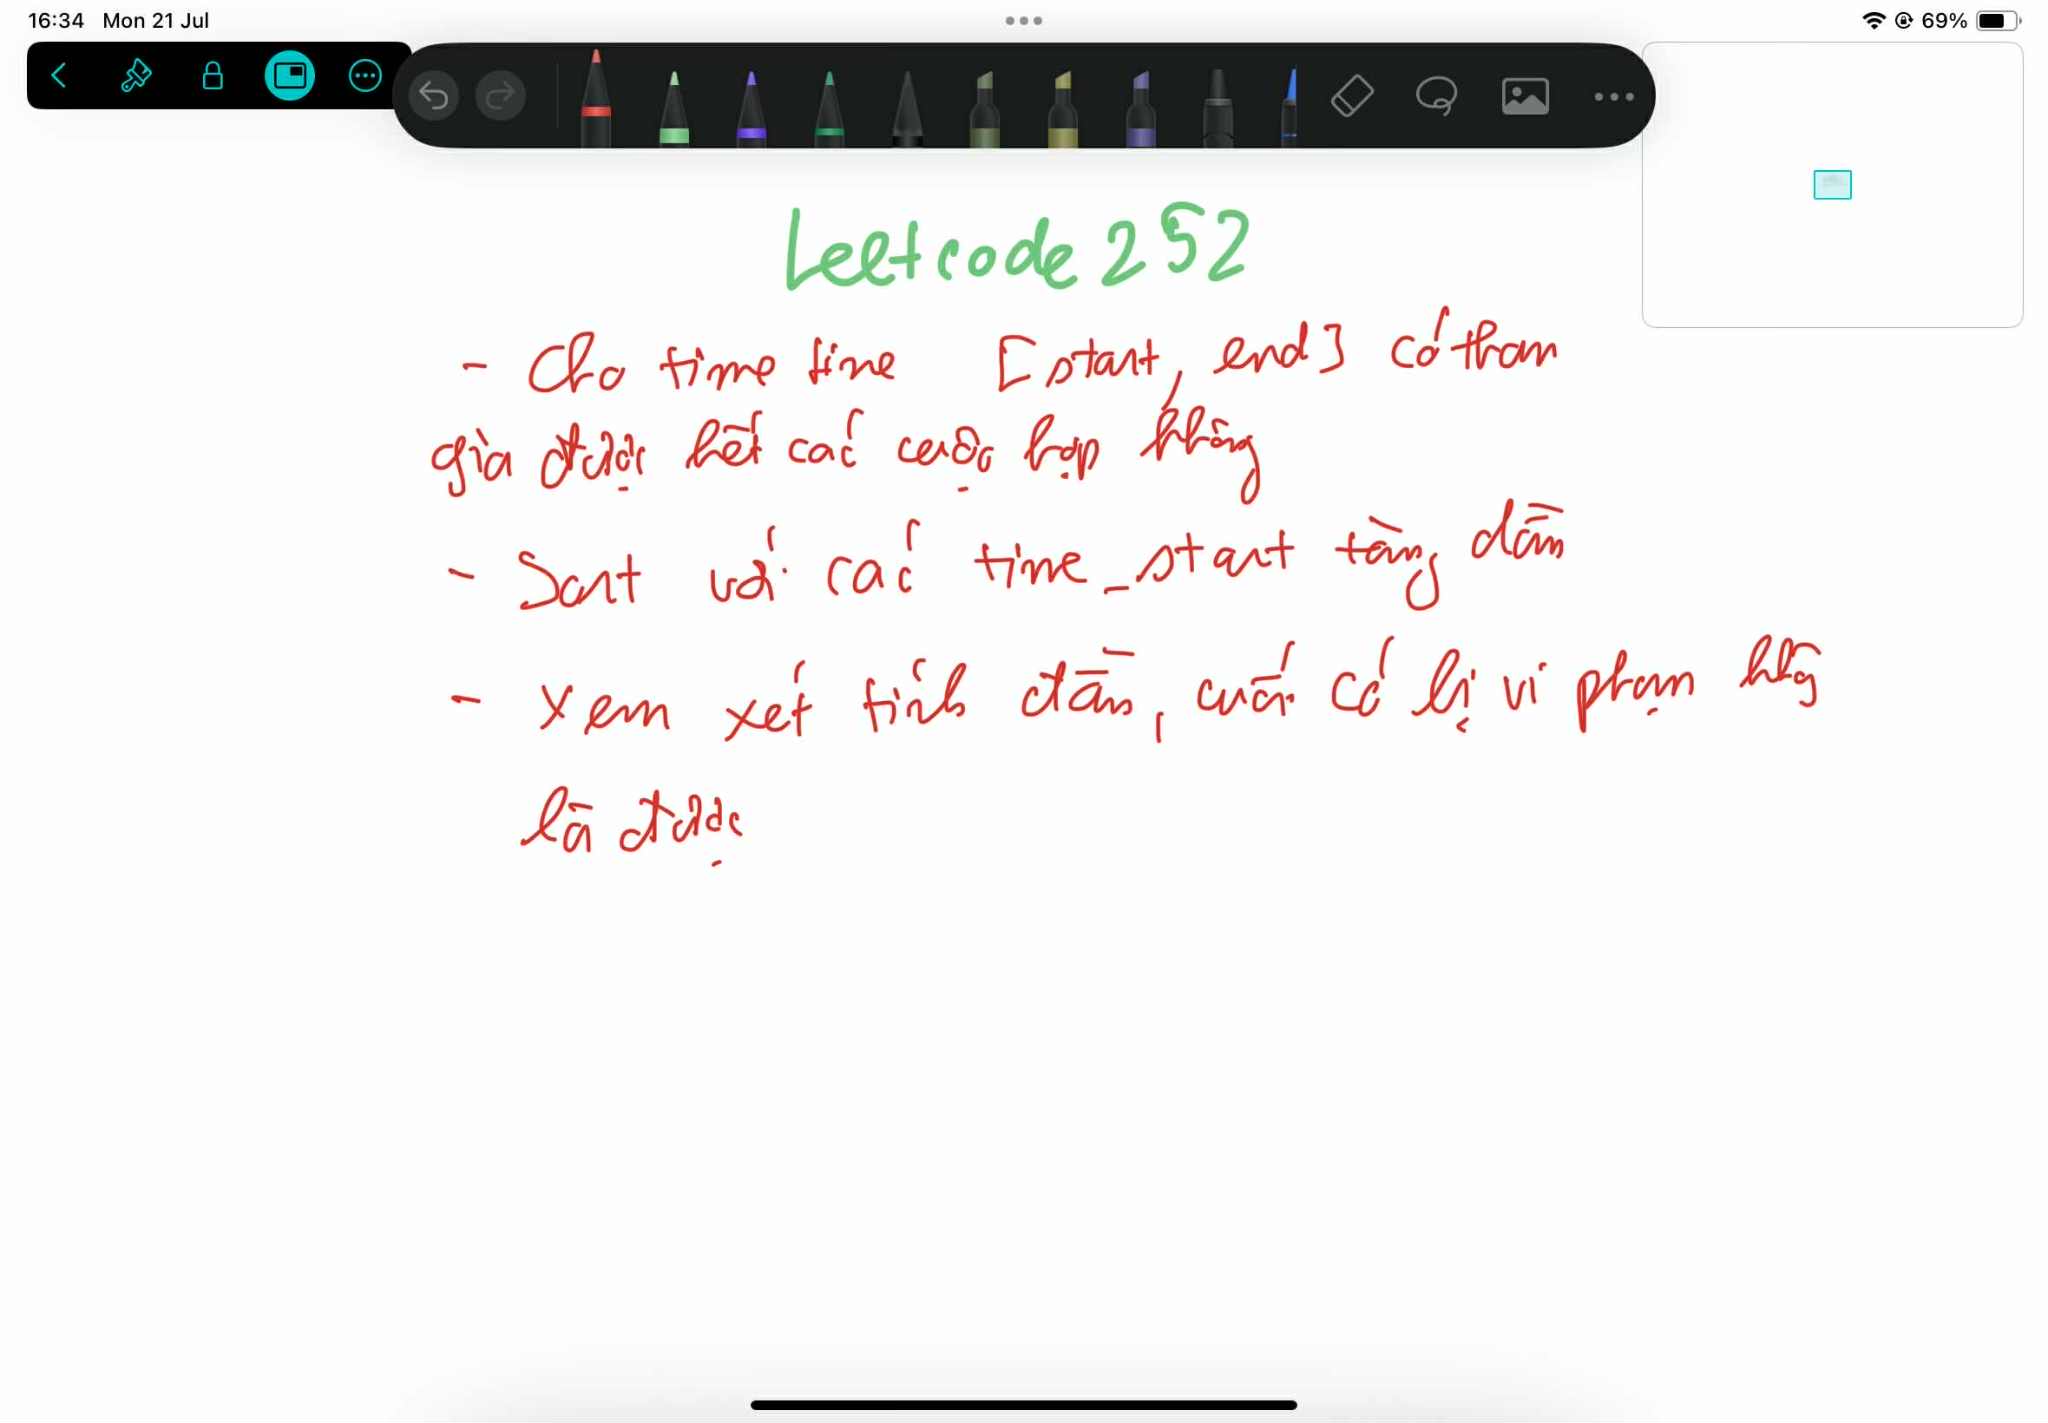 16:34 Mon 21 Jul
69%
Leetcode 252
- Cho time line [start, end] có tham
gia được hết các cuộc họp không
- Sort với các time_start tăng dần
- Xem xét tính đầu, cuối có bị vi phạm khg
là được